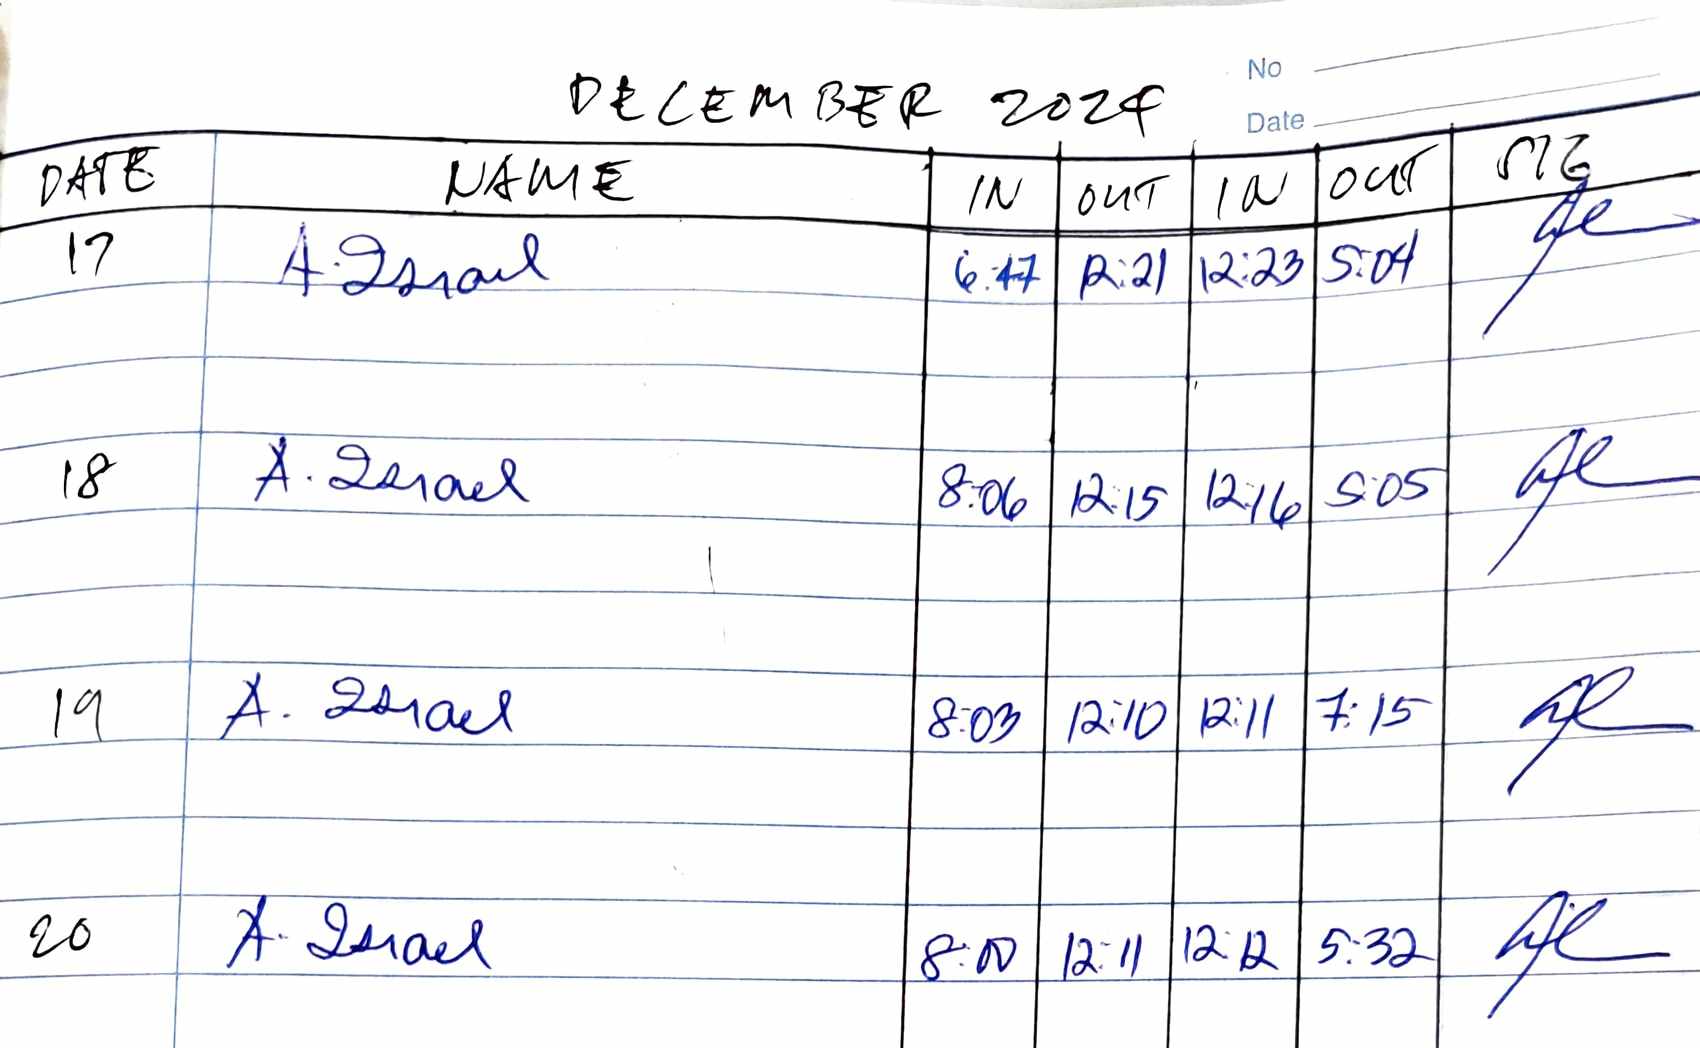 No
DECEMBER 2024
Date
DATE NAME IN OUT IN OUT SIG
17 A. Israel 6:47 12:21 12:23 5:04
18 A. Israel 8:06 12:15 12:16 5:05
19 A. Israel 8:03 12:10 12:11 7:15
20 A. Israel 8:00 12:11 12:12 5:32